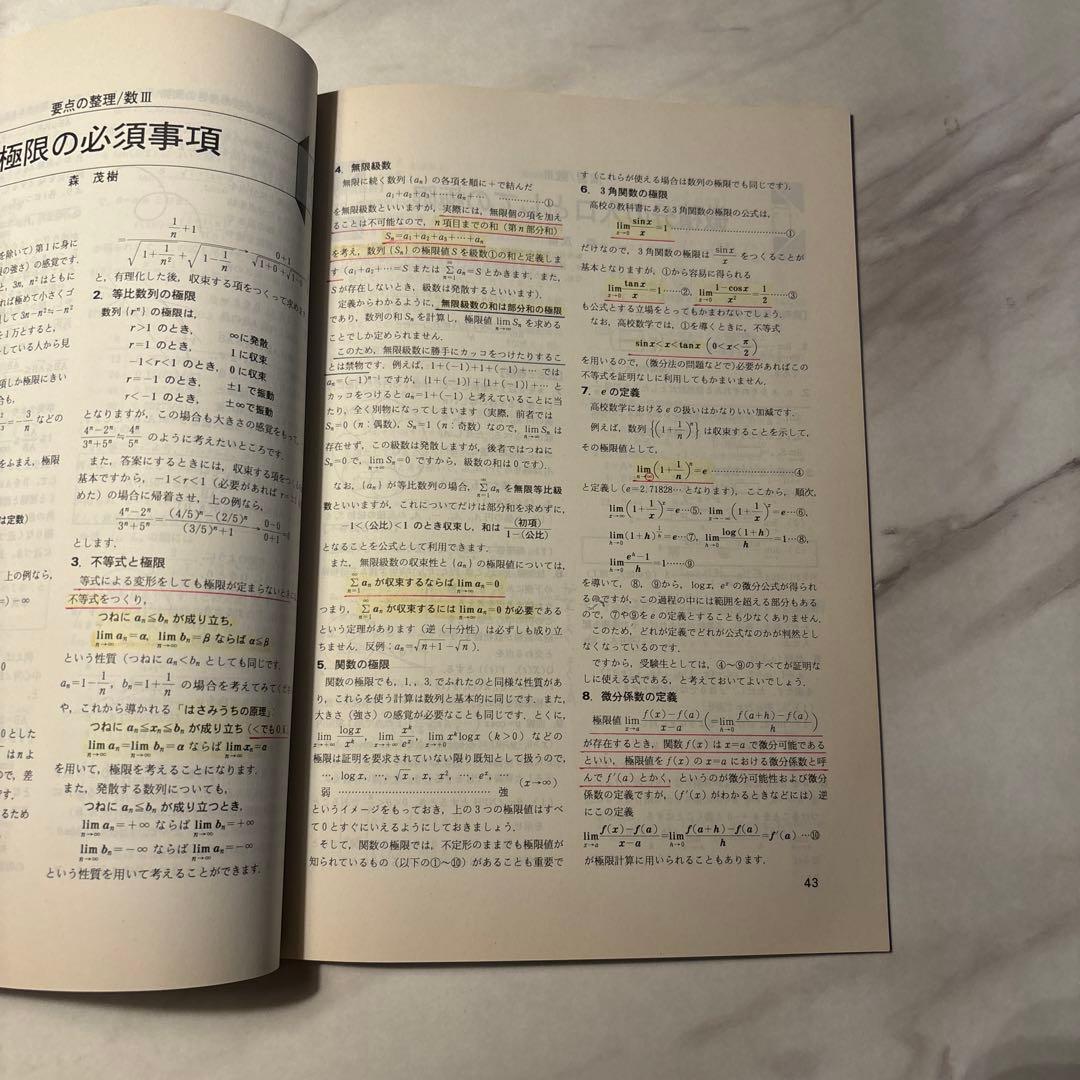 要点の整理/数Ⅲ
極限の必須事項
森 茂樹
を除いて)第1に身に
の強さ)の感覚です.
と, 3n, n²はともに
れば極めて小さくゴ
して3n−n²≒−n²
を1万とすると,
している人から見
項しか極限にきい
合も,
−3/n などの
をふまえ, 極限
は定数)
上の例なら,
=)−∞
0とした
はnよ
ので, 差
です.
るため
=(1/n+1)/(√(1+1/n²)+√(1−1/n)) → (0+1)/(√(1+0)+√(1−0))
と, 有理化した後, 収束する項をつくって求めま
2. 等比数列の極限
数列{rⁿ}の極限は,
r>1のとき, ∞に発散
r=1のとき, 1に収束
−1<r<1のとき, 0に収束
r=−1のとき, ±1で振動
r<−1のとき, ±∞で振動
となりますが, この場合も大きさの感覚をもって,
(4ⁿ−2ⁿ)/(3ⁿ+5ⁿ)≒4ⁿ/5ⁿ のように考えたいところです.
また, 答案にするときには, 収束する項をつく
基本ですから, −1<r<1(必要があればr=
めた)の場合に帰着させ, 上の例なら,
(4ⁿ−2ⁿ)/(3ⁿ+5ⁿ)=((4/5)ⁿ−(2/5)ⁿ)/((3/5)ⁿ+1) → (0−0)/(0+1)
とします.
3. 不等式と極限
等式による変形をしても極限が定まらないときに
不等式をつくり,
つねに aₙ≦bₙ が成り立ち,
lim[n→∞] aₙ=α, lim[n→∞] bₙ=β ならば α≦β
という性質(つねに aₙ<bₙ としても同じです.
aₙ=1−1/n, bₙ=1+1/n の場合を考えてみてくだ
や, これから導かれる「はさみうちの原理」
つねに aₙ≦xₙ≦bₙ が成り立ち(<でも
lim[n→∞] aₙ=lim[n→∞] bₙ=α ならば lim[n→∞] xₙ=α
を用いて, 極限を考えることになります.
また, 発散する数列についても,
つねに aₙ≦bₙ が成り立つとき,
lim[n→∞] aₙ=+∞ ならば lim[n→∞] bₙ=+∞
lim[n→∞] bₙ=−∞ ならば lim[n→∞] aₙ=−∞
という性質を用いて考えることができます.
4. 無限級数
無限に続く数列{aₙ}の各項を順に+で結んだ
a₁+a₂+a₃+…+aₙ+… ……①
を無限級数といいますが, 実際には, 無限個の項を加え
ることは不可能なので, n項目までの和(第n部分和)
Sₙ=a₁+a₂+a₃+…+aₙ
を考え, 数列{Sₙ}の極限値Sを級数①の和と定義しま
す(a₁+a₂+…=S または Σ[n=1,∞] aₙ=S とかきます. また,
Sが存在しないとき, 級数は発散するといいます).
定義からわかるように, 無限級数の和は部分和の極限
であり, 数列の和Sₙを計算し, 極限値 lim[n→∞] Sₙ を求める
ことでしか定められません.
このため, 無限級数に勝手にカッコをつけたりするこ
とは禁物です. 例えば, 1+(−1)+1+(−1)+… では
aₙ=(−1)ⁿ⁻¹ ですが, {1+(−1)}+{1+(−1)}+… と
カッコをつけると aₙ=1+(−1) と考えていることに当
たり, 全く別物になってしまいます(実際, 前者では
Sₙ=0(n:偶数), Sₙ=1(n:奇数)なので, lim[n→∞] Sₙ は
存在せず, この級数は発散しますが, 後者ではつねに
Sₙ=0で, lim[n→∞] Sₙ=0ですから, 級数の和は0です).
なお, {aₙ}が等比数列の場合, Σ[n=1,∞] aₙ を無限等比級
数といいますが, これについてだけは部分和を求めずに,
−1<(公比)<1 のとき収束し, 和は (初項)/(1−(公比))
となることを公式として利用できます.
また, 無限級数の収束性と{aₙ}の極限値については,
Σ[n=1,∞] aₙ が収束するならば lim[n→∞] aₙ=0
つまり, Σ[n=1,∞] aₙ が収束するには lim[n→∞] aₙ=0 が必要である
という定理があります(逆(十分性)は必ずしも成り立
ちません. 反例:aₙ=√(n+1)−√n).
5. 関数の極限
関数の極限でも, 1., 3. でふれたのと同様な性質があ
り, これらを使う計算は数列と基本的に同じです. また,
大きさ(強さ)の感覚が必要なことも同じです. とくに,
lim[x→+∞] logx/xᵏ, lim[x→+∞] xᵏ/eˣ, lim[x→+0] xᵏlogx (k>0)などの
極限は証明を要求されていない限り既知として扱うので,
…, logx, …, √x, x, x², …, eˣ, …
弱 …………………………… 強 (x→∞)
というイメージをもっておき, 上の3つの極限値はすべ
て0とすぐにいえるようにしておきましょう.
そして, 関数の極限では, 不定形のままでも極限値が
知られているもの(以下の①〜⑩)があることも重要で
す(これらが使える場合は数列の極限でも同じです).
6. 3角関数の極限
高校の教科書にある3角関数の極限の公式は,
lim[x→0] sinx/x=1 ……①
だけなので, 3角関数の極限は sinx/x をつくることが
基本となりますが, ①から容易に得られる
lim[x→0] tanx/x=1……②, lim[x→0] (1−cosx)/x²=1/2 ……③
も公式とする立場をとってもかまわないでしょう.
なお, 高校数学では, ①を導くときに, 不等式
sinx<x<tanx (0<x<π/2)
を用いるので, (微分法の問題などで)必要があればこの
不等式を証明なしに利用してもかまいません.
7. eの定義
高校数学におけるeの扱いはかなりいい加減です.
例えば, 数列{(1+1/n)ⁿ}は収束することを示して,
その極限値として,
lim[n→∞] (1+1/n)ⁿ=e ……④
と定義し(e=2.71828…となります), ここから, 順次,
lim[x→∞] (1+1/x)ˣ=e…⑤, lim[x→−∞] (1+1/x)ˣ=e…⑥,
lim[h→0] (1+h)^(1/h)=e…⑦, lim[h→0] log(1+h)/h=1…⑧,
lim[h→0] (eʰ−1)/h=1……⑨
を導いて, ⑧, ⑨から, logx, eˣ の微分公式が得られ
るのですが, この過程の中には範囲を超える部分もある
ので, ⑦や⑨をeの定義とすることも少なくありません.
このため, どれが定義でどれが公式なのかが判然とし
なくなっているのです.
ですから, 受験生としては, ④〜⑨のすべてが証明な
しに使える式である, と考えておいてよいでしょう.
8. 微分係数の定義
極限値 lim[x→a] (f(x)−f(a))/(x−a) (=lim[h→0] (f(a+h)−f(a))/h)
が存在するとき, 関数f(x)はx=aで微分可能である
といい, 極限値をf(x)のx=aにおける微分係数と呼
んでf′(a)とかく, というのが微分可能性および微分
係数の定義ですが, (f′(x)がわかるときなどには)逆
にこの定義
lim[x→a] (f(x)−f(a))/(x−a)=lim[h→0] (f(a+h)−f(a))/h=f′(a) …⑩
が極限計算に用いられることもあります.
43